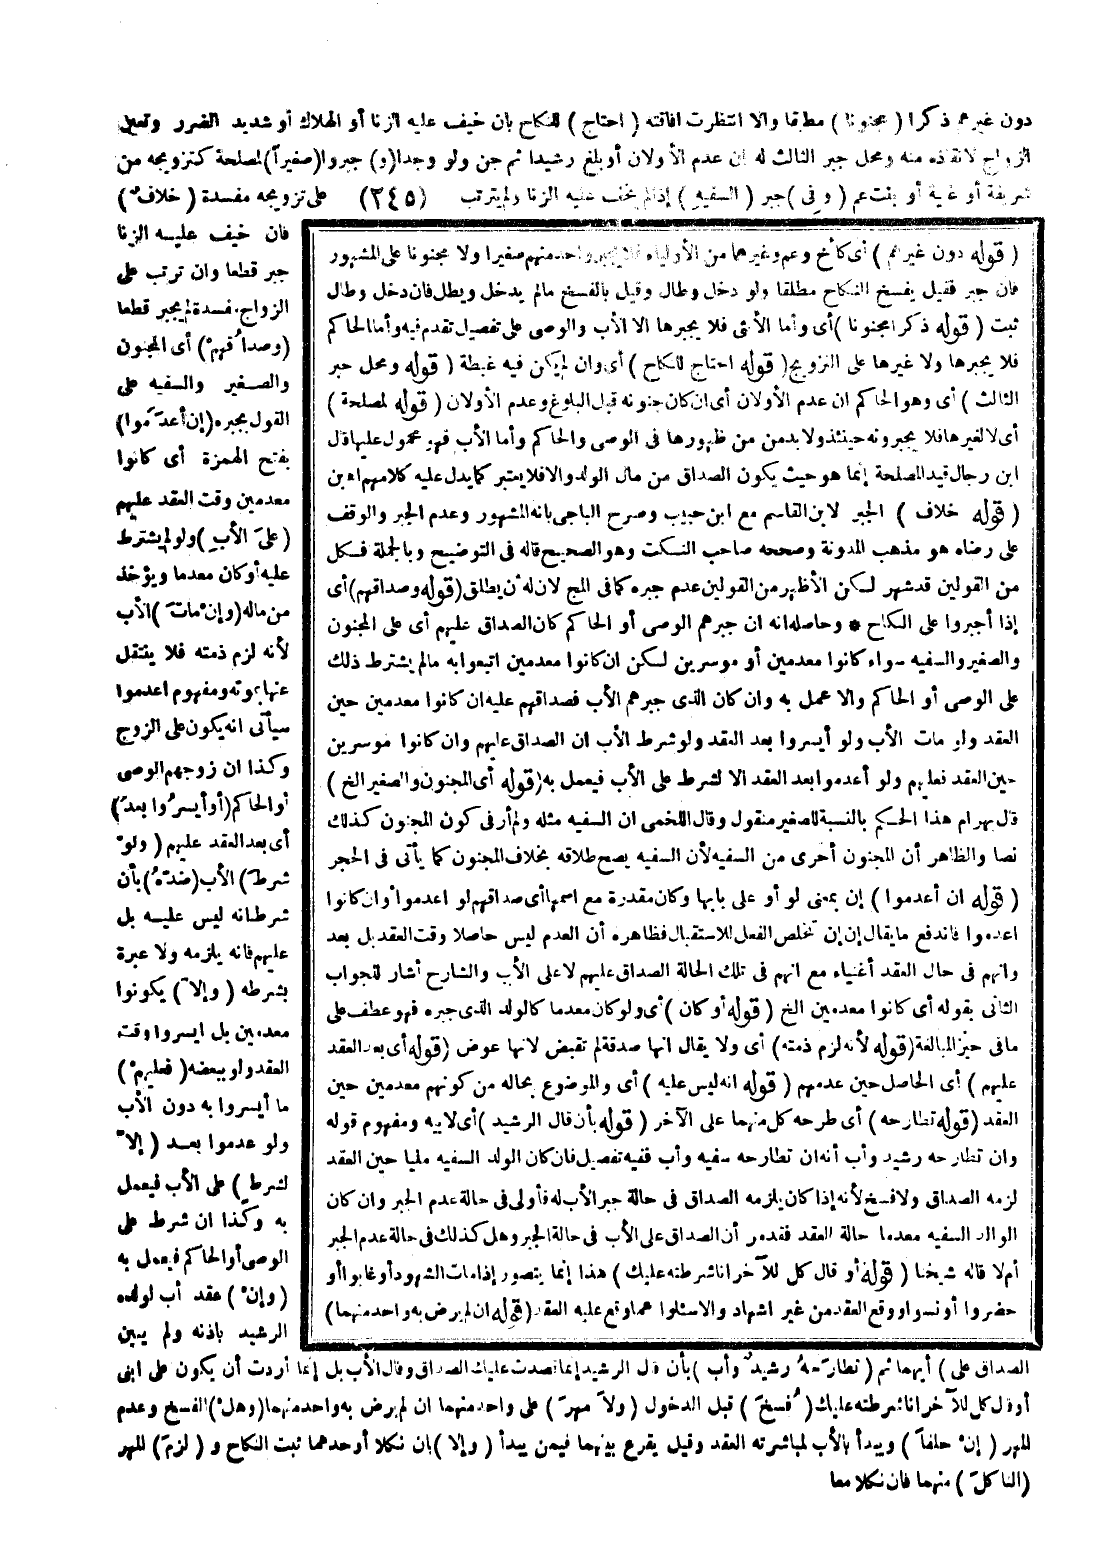 دون غيرهم ذكرا ( مجنونا ) مطبقا والا انتظرت افاقته ( احتاج ) للنكاح بان خيف عليه الزنا أو الهلاك أو شديد الضرر وتعين
الزواج لانقاذه منه ومحل جبر الثالث له ان عدم الأولان أو بلغ رشيدا ثم جن ولو وجدا (و) جبروا (صغيراً) لمصلحة كتزويجه من
شريفة أو غنية أو بنت عم ( وفى ) جبر ( السفيه ) إذا لم يخف عليه الزنا ولم يترتب (٢٤٥) على تزويجه مفسدة ( خلاف )
فان خيف عليه الزنا
جبر قطعا وان ترتب على
الزواج مفسدة لم يجبر قطعا
(وصداقهم) أى المجنون
والصغير والسفيه على
القول بجبره (إن أعدموا)
بفتح الهمزة أى كانوا
معدمين وقت العقد عليهم
(على الأب) ولو لم يشترط
عليه أو كان معدما ويؤخذ
من ماله (وإن مات) الأب
لأنه لزم ذمته فلا ينتقل
عنها بموته ومفهوم اعدموا
سيأتى انه يكون على الزوج
وكذا ان زوجهم الوصى
أو الحاكم (أو أيسروا بعد)
أى بعد العقد عليهم ( ولو
شرط ) الأب (ضده) بأن
شرط انه ليس عليه بل
عليهم فانه يلزمه ولا عبرة
بشرطه ( وإلا ) يكونوا
معدمين بل ايسروا وقت
العقد ولو ببعضه ( فعليهم )
ما أيسروا به دون الأب
ولو عدموا بعد ( إلا
لشرط ) على الأب فيعمل
به وكذا ان شرط على
الوصى أو الحاكم فيعمل به
( وإن ) عقد أب لولده
الرشيد باذنه ولم يبين
( قوله دون غيرهم ) أى كأخ وعم وغيرهما من الأولياء فلا يجبر واحد منهم صغيرا ولا مجنونا على المشهور
فان جبر فقيل يفسخ النكاح مطلقا ولو دخل وطال وقيل بالفسخ مالم يدخل ويطل فان دخل وطال
ثبت ( قوله ذكرا مجنونا ) أى وأما الأنثى فلا يجبرها الا الأب والوصى على تفصيل تقدم فيه وأما الحاكم
فلا يجبرها ولا غيرها على التزويج ( قوله احتاج للنكاح ) أى وان لم يكن فيه غبطة ( قوله ومحل جبر
الثالث ) أى وهو الحاكم ان عدم الأولان أى ان كان جنونه قبل البلوغ وعدم الأولان ( قوله لمصلحة )
أى لا لغيرها فلا يجبرونه حينئذ ولا بد من من ظهورها فى الوصى والحاكم وأما الأب فهو محمول عليها قال
ابن رجال قيد المصلحة إنما هو حيث يكون الصداق من مال الولد والا فلا يعتبر كما يدل عليه كلامهم اه بن
( قوله خلاف ) الجبر لابن القاسم مع ابن حبيب وصرح الباجى بانه المشهور وعدم الجبر والوقف
على رضاه هو مذهب المدونة وصححه صاحب النكت وهو الصحيح قاله فى التوضيح وبالجملة فكل
من القولين قد شهر لكن الأظهر من القولين عدم جبره كما فى المج لان له أن يطلق (قوله وصداقهم) أى
إذا أجبروا على النكاح * وحاصله انه ان جبرهم الوصى أو الحاكم كان الصداق عليهم أى على المجنون
والصغير والسفيه سواء كانوا معدمين أو موسرين لكن ان كانوا معدمين اتبعوا به مالم يشترط ذلك
على الوصى أو الحاكم والا عمل به وان كان الذى جبرهم الأب فصداقهم عليه ان كانوا معدمين حين
العقد ولو مات الأب ولو أيسروا بعد العقد ولو شرط الأب ان الصداق عليهم وان كانوا موسرين
حين العقد فعليهم ولو أعدموا بعد العقد الا لشرط على الأب فيعمل به (قوله أى المجنون والصغير الخ )
قال بهرام هذا الحكم بالنسبة للصغير منقول وقال اللخمى ان السفيه مثله ولم أر فى كون المجنون كذلك
نصا والظاهر أن المجنون أحرى من السفيه لأن السفيه يصح طلاقه بخلاف المجنون كما يأتى فى الحجر
( قوله ان أعدموا ) إن بمعنى لو أو على بابها وكان مقدرة مع اسمها أى صداقهم لو اعدموا أو ان كانوا
اعدموا فاندفع ما يقال إن إن تخلص الفعل للاستقبال فظاهره أن العدم ليس حاصلا وقت العقد بل بعد
وانهم فى حال العقد أغنياء مع انهم فى تلك الحالة الصداق عليهم لا على الأب والشارح أشار للجواب
الثانى بقوله أى كانوا معدمين الخ ( قوله أو كان ) أى ولو كان معدما كالولد الذى جبره فهو عطف على
مافى حيز المبالغة (قوله لأنه لزم ذمته) أى ولا يقال انها صدقة لم تقبض لانها عوض (قوله أى بعد العقد
عليهم ) أى الحاصل حين عدمهم ( قوله انه ليس عليه ) أى والموضوع بحاله من كونهم معدمين حين
العقد (قوله تطارحه) أى طرحه كل منهما على الآخر ( قوله بأن قال الرشيد ) أى لابيه ومفهوم قوله
وان تطارحه رشيد وأب أنه ان تطارحه سفيه وأب ففيه تفصيل فان كان الولد السفيه مليا حين العقد
لزمه الصداق ولا فسخ لأنه إذا كان يلزمه الصداق فى حالة جبر الأب له فأولى فى حالة عدم الجبر وان كان
الولد السفيه معدما حالة العقد فقد مر أن الصداق على الأب فى حالة الجبر وهل كذلك فى حالة عدم الجبر
أم لا قاله شيخنا ( قوله أو قال كل للآخر انا شرطته عليك ) هذا إنما يتصور إذا مات الشهود أو غابوا أو
حضروا أو نسوا ووقع العقد من غير اشهاد والا سئلوا عما وقع عليه العقد (قوله ان لم يرض به واحد منهما)
الصداق على ) أيهما ثم ( تطارحه رشيد وأب ) بأن قال الرشيد إنما قصدت عليك الصداق وقال الأب بل إنما أردت أن يكون على ابنى
أو قال كل للآخر انا شرطته عليك ( فسخ ) قبل الدخول ( ولا مهر ) على واحد منهما ان لم يرض به واحد منهما (وهل) الفسخ وعدم
المهر ( إن حلفا ) ويبدأ بالأب لمباشرته العقد وقيل يقرع بينهما فيمن يبدأ ( وإلا ) بان نكلا أو حدهما ثبت النكاح و ( لزم ) المهر
(الناكل ) منهما فان نكلا معا